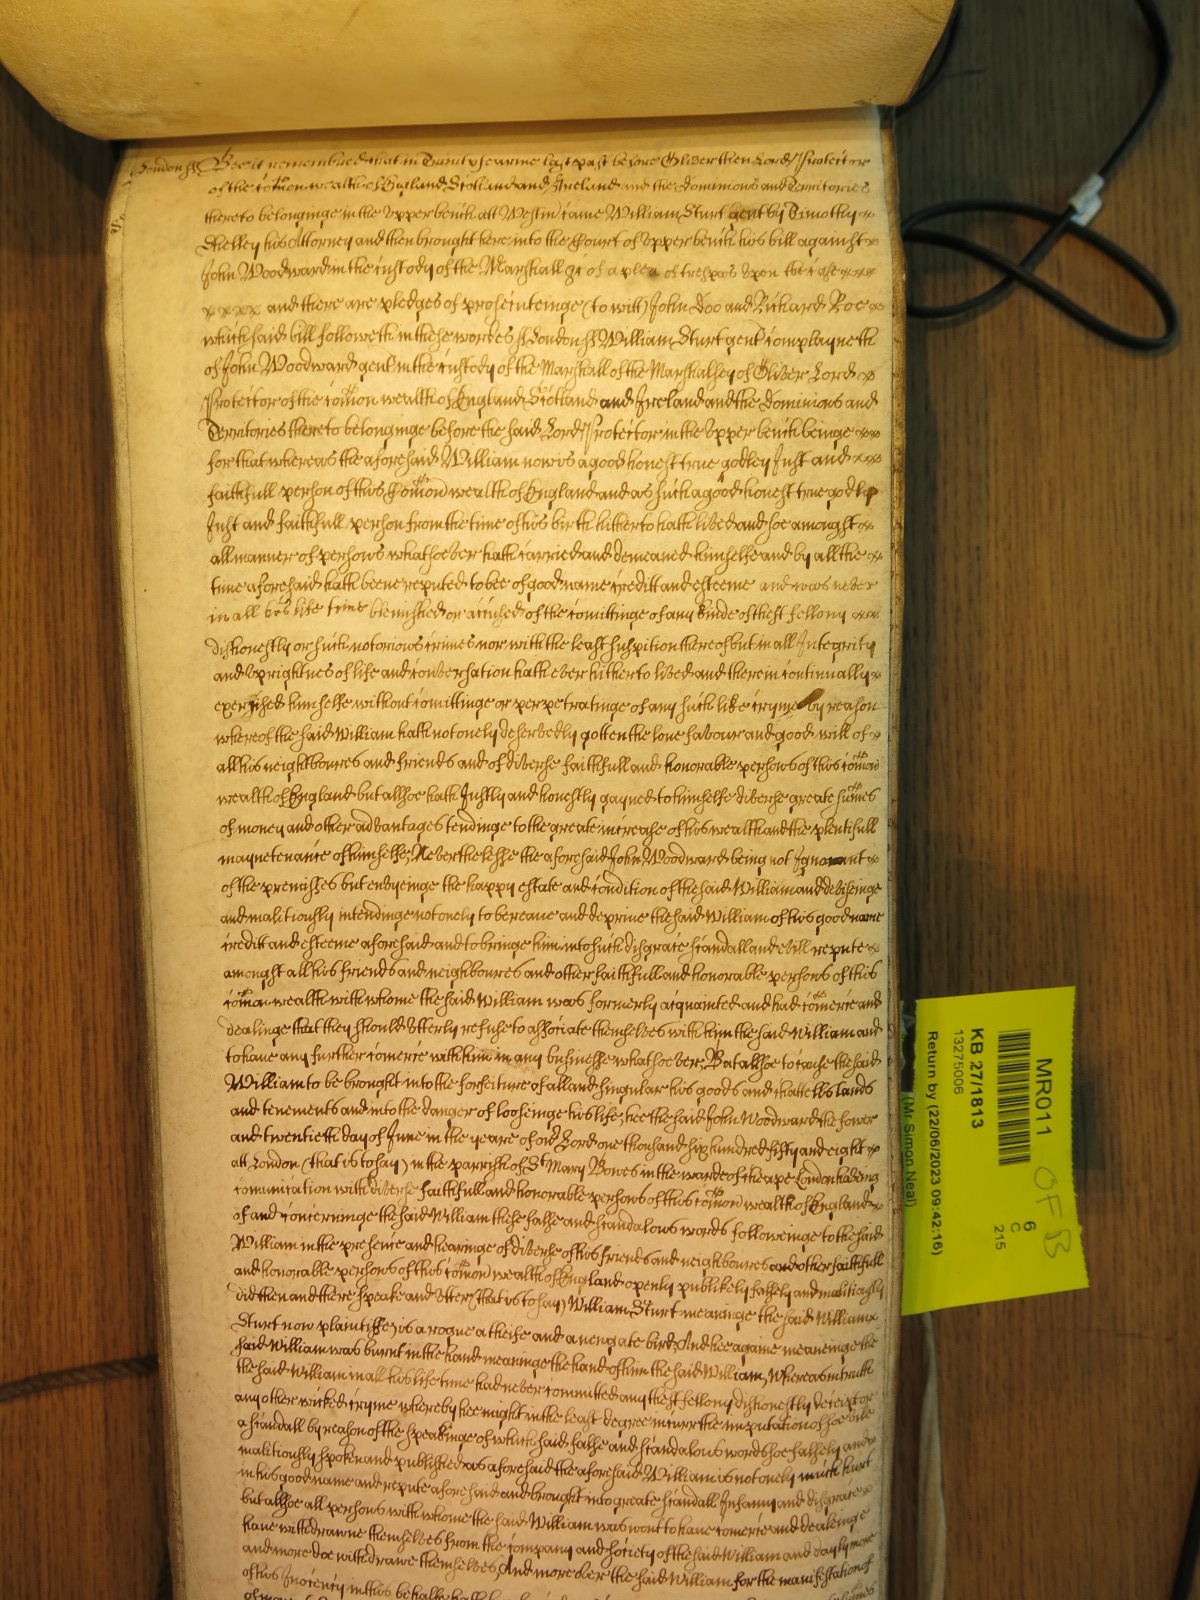 London ss Bee it remembred that in Trinity tearme last past before Oliver then Lord Protector
of the comon wealth of England Scotland and Ireland and the dominions and Territories
thereto belonginge in the Upper bench att Westm came William Sturt gent by Timothy
Shelley his Attorney and then brought here into the Court of Upper bench his bill against
John Woodward in the custody of the Marshall &c of a plea of trespas upon the case
and there are pledges of prosecuteinge (to witt) John Doo and Richard Roe
which said bill followeth in these wordes ss London ss William Sturt gent complayneth
of John Woodward gent in the custody of the Marshall of the Marshalsey of Oliver Lord
Protector of the comon wealth of England Scotland and Ireland and the Dominions and
Territories thereto belonginge before the said Lord Protector in the Upper bench beinge
for that whereas the aforesaid William now is a good honest true godley Just and
faithfull person of this Comon wealth of England and as such a good honest true godly
Just and faithfull person from the time of his birth hitherto hath lived and soe amongst
all manner of persons whatsoever hath carried and demeaned himselfe and by all the
time aforesaid hath beene reputed to bee of good name creditt and esteeme and was never
in all his life time blemished or accused of the comittinge of any kinde of theft fellony
dishonestly or such notorious crimes nor with the least suspition thereof but in all Integrity
and uprightnes of life and conversation hath ever hitherto lived and therein continually
exercised himselfe without comittinge or perpetratinge of any such like cryme by reason
whereof the said William hath not onely deservedly gotten the love favour and good will of
all his neighboures and friends and of diverse faithfull and honorable persons of this comon
wealth of England but allsoe hath Justly and honestly gayned to himselfe diverse great sumes
of money and other advantages tendinge to the great increase of his wealth and the plentifull
maynetenance of himselfe; Neverthelesse the aforesaid John Woodward being not Ignorant
of the premisses but envyeinge the happy estate and condition of the said William and deviseinge
and malitiously intendinge not onely to bereave and deprive the said William of his good name
creditt and esteeme aforesaid and to bringe him into such disgrace scandall and evill repute
amongst all his friends and neighboures and other faithfull and honorable persons of this
comon wealth with whome the said William was formerly acquainted and had comerce and
dealinge that they should utterly refuse to associate themselves with him the said William and
to have any further comerce with him in any businesse whatsoever, But allsoe to cause the said
William to be brought into the forfeiture of all and singular his goods and chattells lands
and tenements and into the danger of looseinge his life, hee the said John Woodward the fower
and twentieth day of June in the yeare of our Lord one thousand six hundred fifty and eight
att London (that is to say) in the parrish of St Mary Bowes in the warde of Cheape London haveing
comunication with diverse faithfull and honorable persons of this comon wealth of England
of and concerninge the said William these false and scandalous words followeinge to the said
William in the presence and hearinge of diverse of his friends and neighboures and other faithfull
and honorable persons of this comon wealth of England openly publikely falsely and malitiously
did then and there speake and utter (that is to say) William Sturt meaninge the said William
Sturt now plaintiffe is a rogue a theife and a newgate bird, And hee againe meaneinge the
said William was burnt in the hand meaninge the hand of him the said William, Whereas in truth
the said William in all his life time had never committed any theft fellony dishonestly deceipt or
any other wicked cryme whereby hee might in the least degree incurr the imputation of soe vile
a scandall by reason of the speakinge of which said false and scandalous words soe falsely and
malitiously spoken and published as aforesaid the aforesaid William is not onely much hurt
in his good name and repute aforesaid and brought into great scandall Infamy and disgrace
but allsoe all persons with whome the said William was wont to have comerce and dealeinge
have withdrawne themselves from the company and society of the said William and dayly more
and more doe withdrawe themselves, And moreover the said William for the manifestation of
of his Inocency in this behalfe hath
MR011
KB 27/1813
13275006
Return by (22/06/2023 09:42:16)
(Mr Simon Neal)
6
C
215
OFB